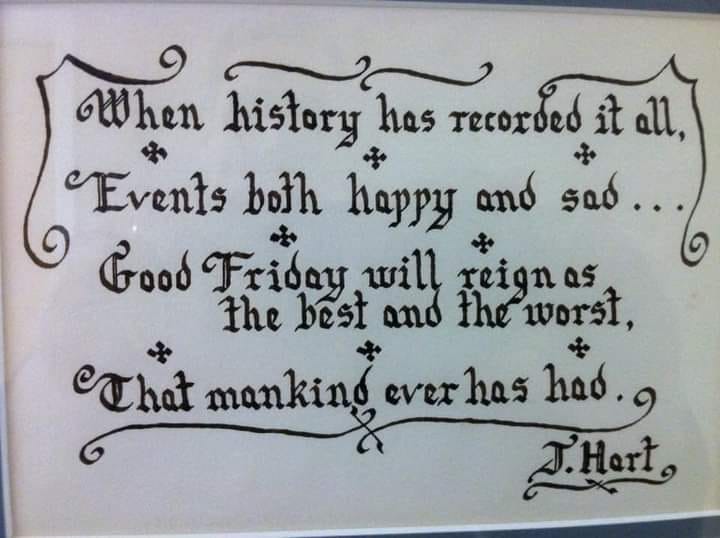 When history has recorded it all,
Events both happy and sad . . .
Good Friday will reign as
the best and the worst,
That mankind ever has had.
J. Hart